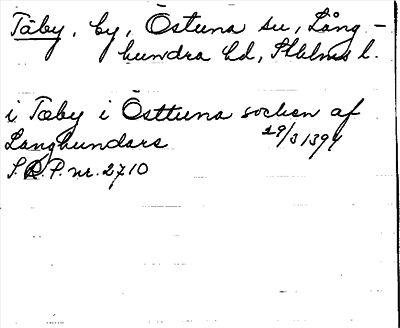 Täby, by, Östuna sn, Lång-
hundra hd, Sthlms l.
i Tæby i Østtuna socken af
Langhundars 29/3 1394
S.R.P. nr. 2710